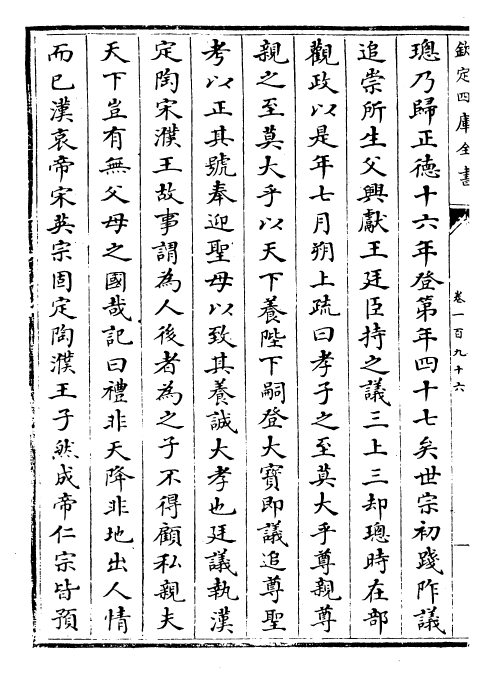 欽定四庫全書
卷一百九十六
璁乃歸正德十六年登第年四十七矣世宗初踐阼議
追崇所生父興獻王廷臣持之議三上三却璁時在部
觀政以是年七月朔上疏曰孝子之至莫大乎尊親尊
親之至莫大乎以天下養陛下嗣登大寶即議追尊聖
考以正其號奉迎聖母以致其養誠大孝也廷議執漢
定陶宋濮王故事謂為人後者為之子不得顧私親夫
天下豈有無父母之國哉記曰禮非天降非地出人情
而已漢哀帝宋英宗固定陶濮王子然成帝仁宗皆預